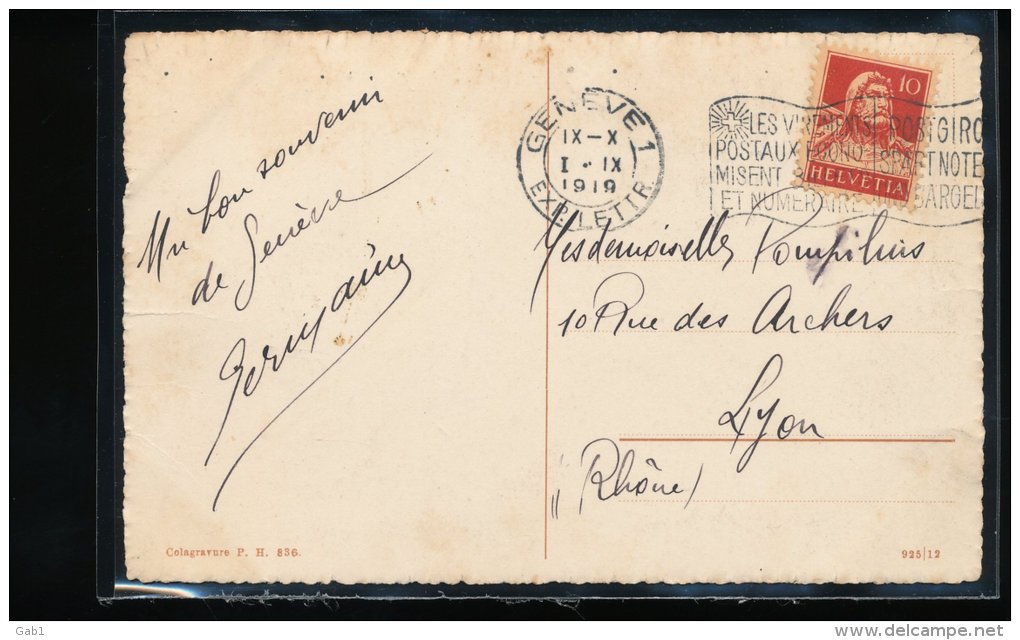 Un bon souvenir
de Genève
Germaine
GENÈVE 1
IX–X
I · IX
1919
EXP. LETTR.
LES VIREMENTS
POSTAUX ÉCONO-
MISENT
ET NUMÉRAIRE
POSTGIRO
SPART NOTE
BARGEL
10
HELVETIA
Mesdemoiselles Pompilius
10 Rue des Archers
Lyon
(Rhône)
Colagravure P. H. 836.
925|12
Gab1
www.delcampe.net